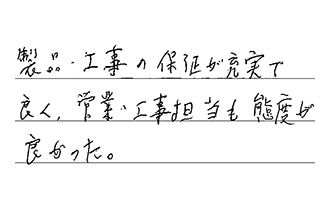 製品・工事の保証が充実で
良く、営業・工事担当も態度が
良かった。